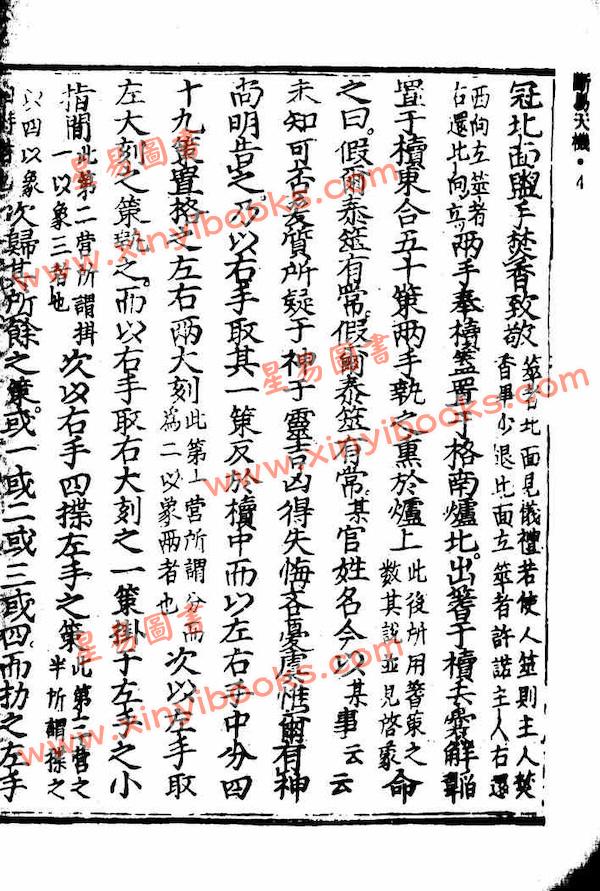 斷易天機·4
冠北面盥手焚香致敬 筮者北面見儀禮若使人筮則主人焚
香畢少退北面立筮者許諾主人右還
西向左筮者
右還北向立 兩手奉櫝蓋置于格南爐北出蓍于櫝去囊解韜
置于櫝東合五十策兩手執之熏於爐上 此後所用蓍策之
數其說並見啓蒙 命
之曰假爾泰筮有常假爾泰筮有常某官姓名今以某事云云
未知可否爰質所疑于神于靈吉凶得失悔吝憂虞惟爾有神
尚明告之乃以右手取其一策反於櫝中而以左右手中分四
十九策置格之左右兩大刻 此第一營所謂分而
為二以象兩者也 次以左手取
左大刻之策執之而以右手取右大刻之一策掛于左手之小
指間 此第二營所謂掛
一以象三者也 次以右手四揲左手之策 此第三營之
半所謂揲之
以四以象
次歸其所餘之策或一或二或三或四而扐之左手
星易圖書
www.xinyibooks.com
星易圖書
www.xinyibooks.com
星易圖書
www.xinyibooks.com
星易圖書
www.xinyibooks.com